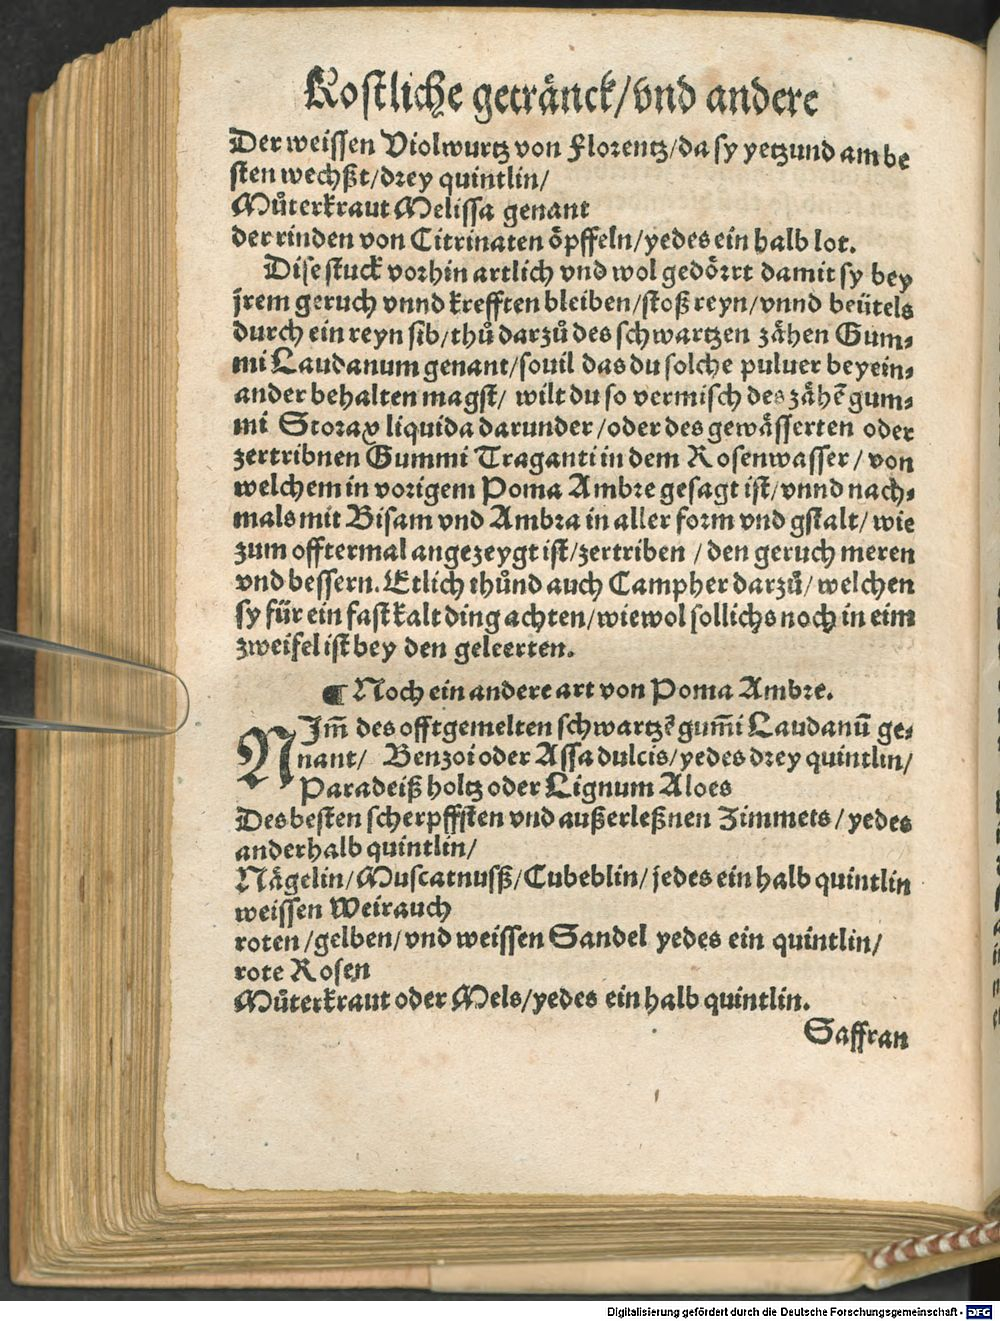 Kostliche getränck/vnd andere
Der weissen Violwurtz von Florentz/da sy yetzund am be
sten wechßt/drey quintlin/
Můterkraut Melissa genant
der rinden von Citrinaten öpffeln/yedes ein halb lot.
Dise stuck vorhin artlich vnd wol gedörrt damit sy bey
jrem geruch vnnd krefften bleiben/stoß reyn/vnnd beütels
durch ein reyn sib/thů darzů des schwartzen zähen Gum⸗
mi Laudanum genant/souil das du solche puluer beyein⸗
ander behalten magst/ wilt du so vermisch des zähẽ gum⸗
mi Storax liquida darunder/oder des gewässerten oder
zertribnen Gummi Traganti in dem Rosenwasser/von
welchem in vorigem Poma Ambre gesagt ist/vnnd nach⸗
mals mit Bisam vnd Ambra in aller form vnd gstalt/wie
zum offtermal angezeygt ist/zertriben/den geruch meren
vnd bessern. Etlich thůnd auch Campher darzů/welchen
sy für ein fast kalt ding achten/wiewol sollichs noch in eim
zweifel ist bey den geleerten.
¶ Noch ein andere art von Poma Ambre.
NJm̃ des offtgemelten schwartzẽ gum̃i Laudanũ ge⸗
nant/ Benzoi oder Assa dulcis/yedes drey quintlin/
Paradeiß holtz oder Lignum Aloes
Des besten scherpffsten vnd außerleßnen Zimmets/yedes
anderhalb quintlin/
Nägelin/Muscatnusß/Cubeblin/jedes ein halb quintlin
weissen Weirauch
roten/gelben/vnd weissen Sandel yedes ein quintlin/
rote Rosen
Můterkraut oder Mels/yedes ein halb quintlin.
Saffran
Digitalisierung gefördert durch die Deutsche Forschungsgemeinschaft - DFG